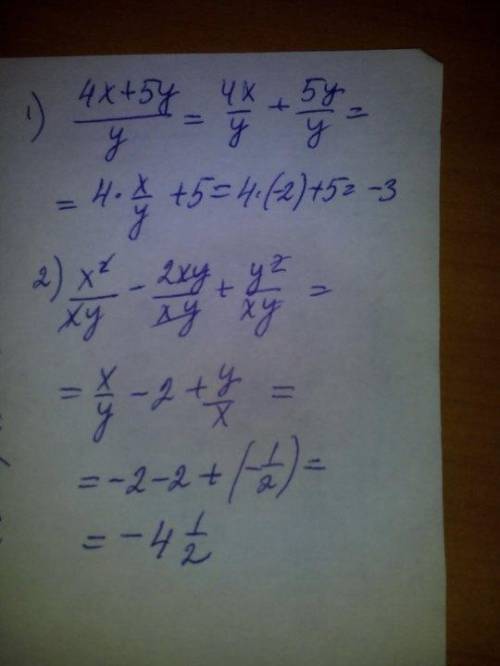 1) (4x+5y)/y = 4x/y + 5y/y =
= 4 · x/y + 5 = 4 · (-2) + 5 = -3
2) x²/xy - 2xy/xy + y²/xy =
= x/y - 2 + y/x =
= -2 - 2 + (-1/2) =
= -4 1/2